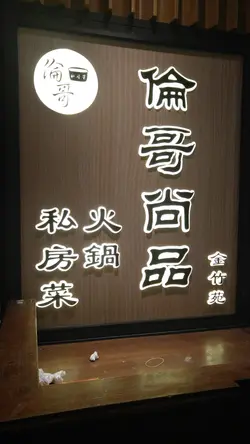 倫哥
倫哥尚品
火鍋
私房菜
金竹苑